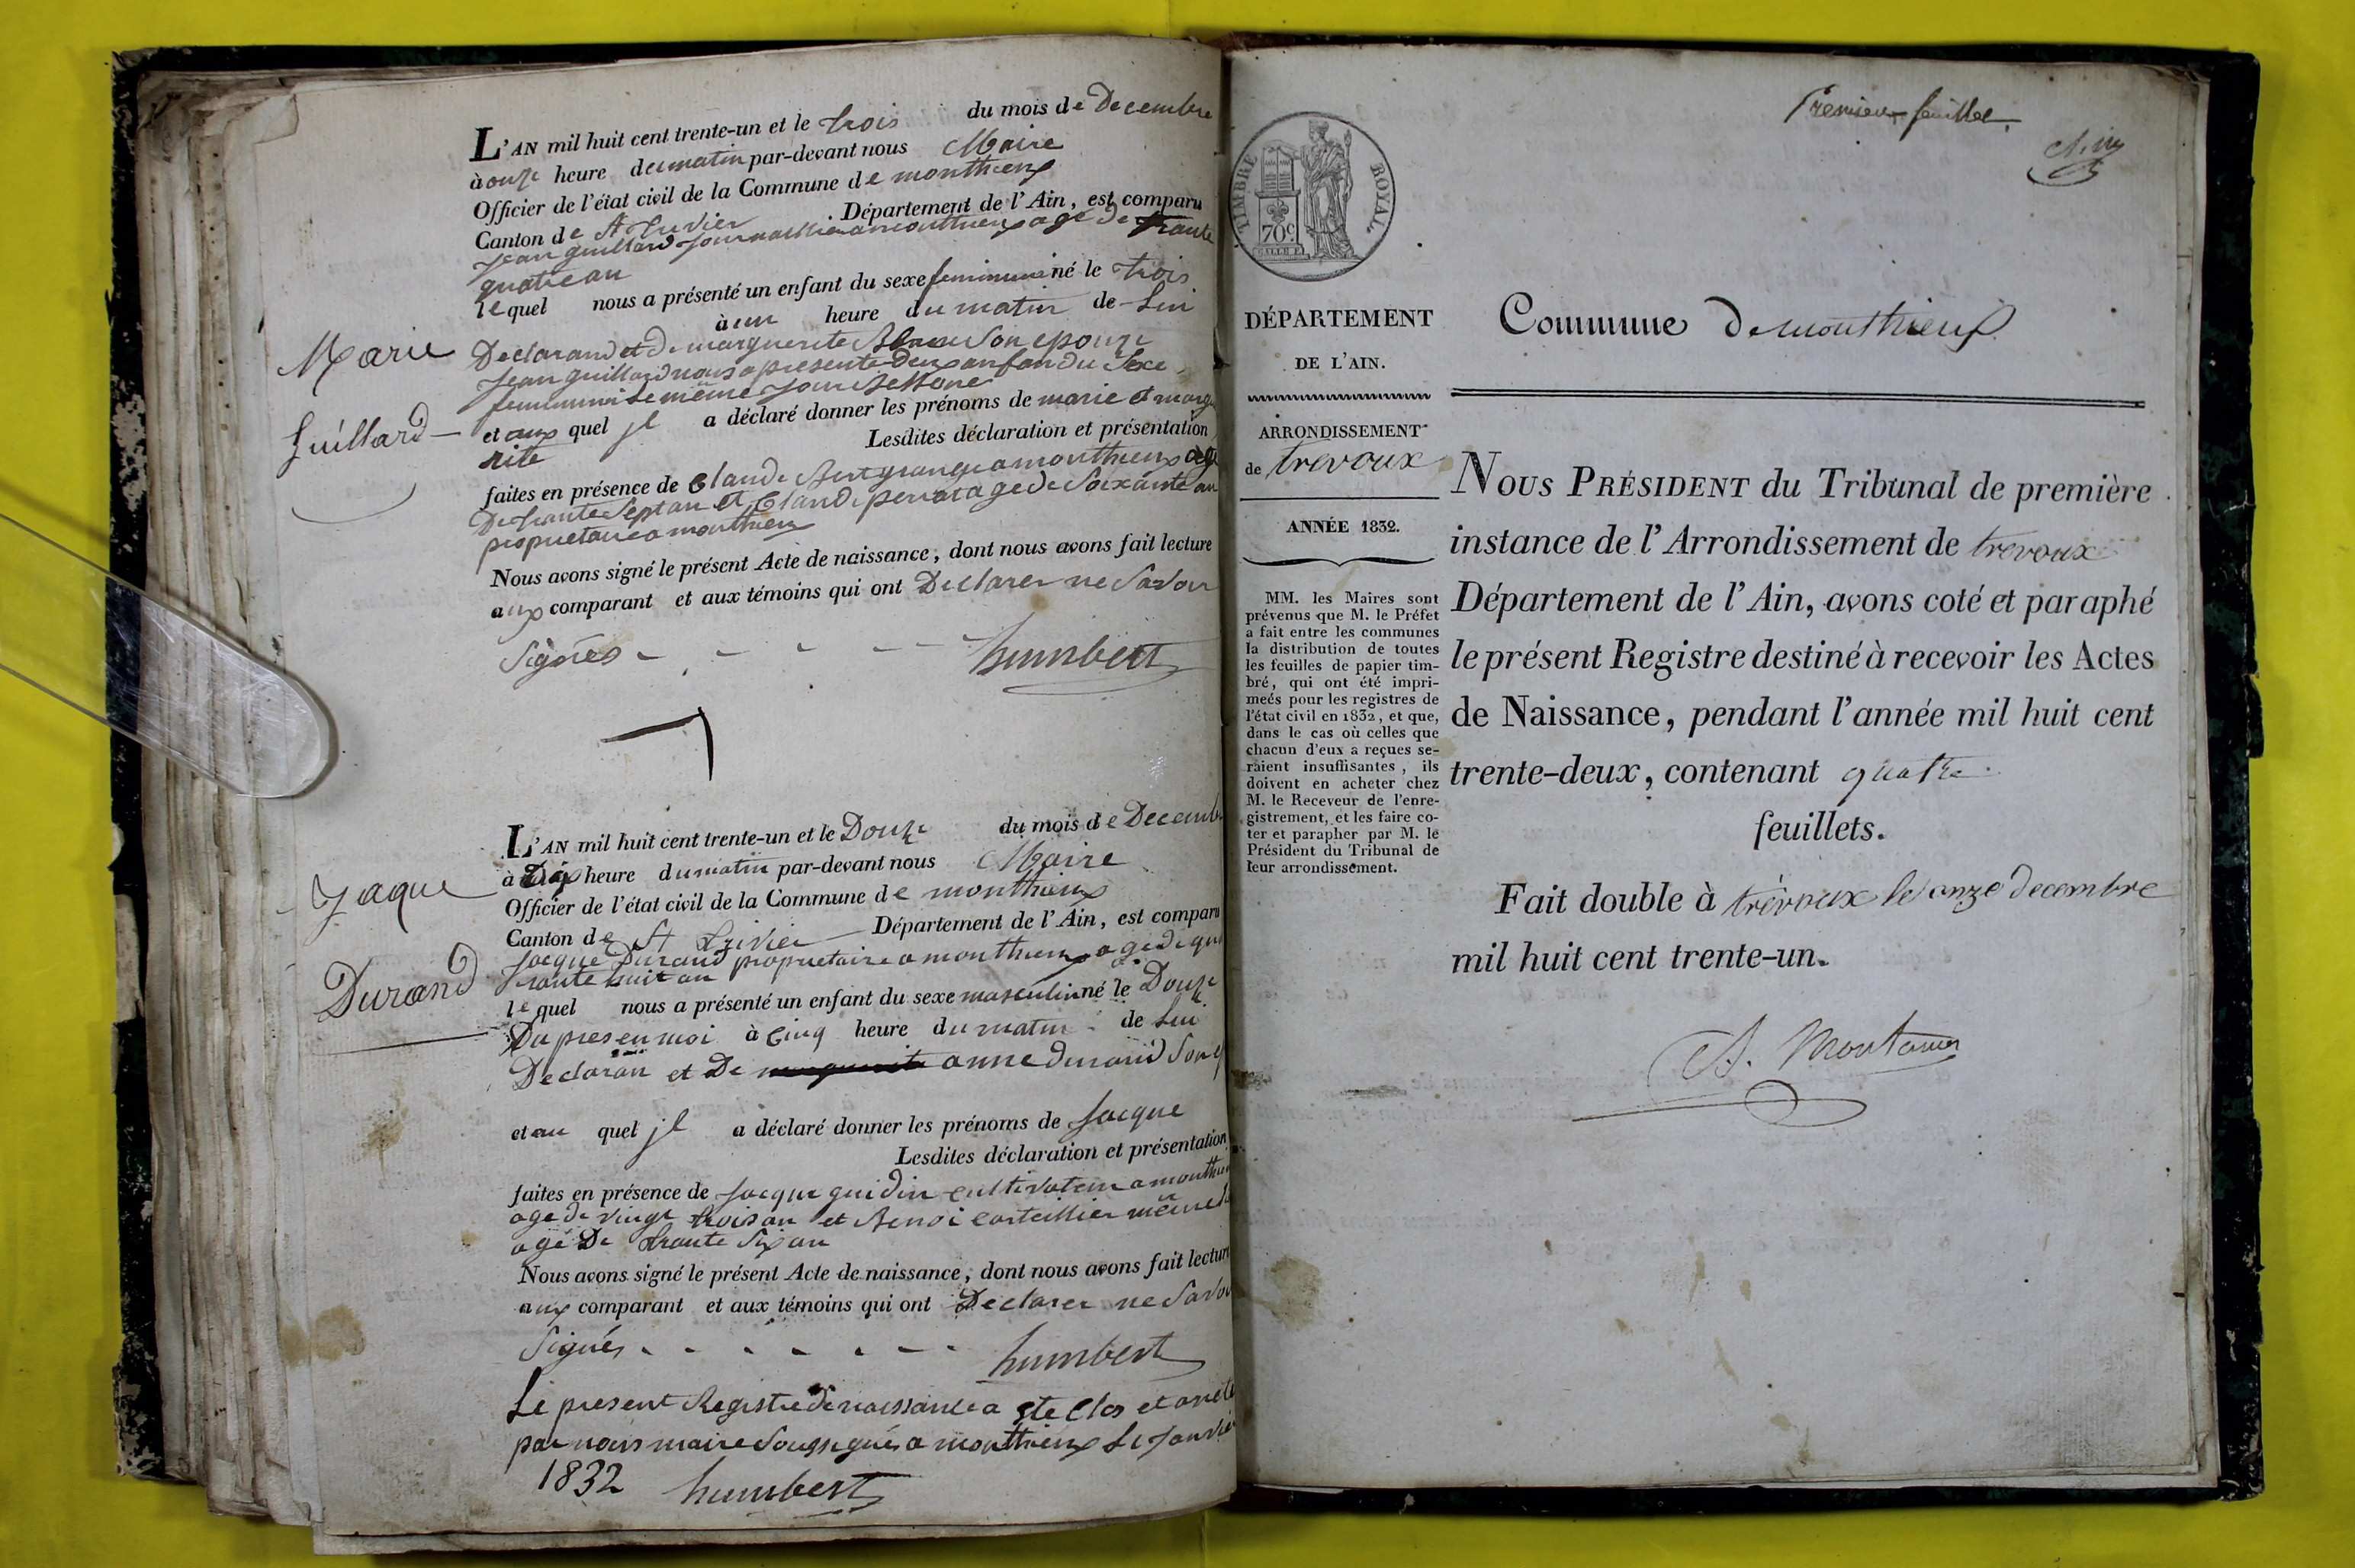 L'AN mil huit cent trente-un et le trois du mois de Decembre
à onze heure du matin par-devant nous Maire
Officier de l'état civil de la Commune de monthieux
Canton de St Trivier Département de l'Ain, est comparu
jean guillard journallier a monthieux age de trante
quatre an
lequel nous a présenté un enfant du sexe femininin né le trois
à un heure du matin de Lui
Marie
Declarand et de marguerite son epouze
jean guillard nous a presente deux anfan du Sexe
femininin Le même jour
Guillard
et aux quel jl a déclaré donner les prénoms de marie et marg
rite
Lesdites déclaration et présentation
faites en présence de Claude grange a monthieux age
De trante Sept an et Claude perrat age de Soixante an
proprietaire a monthieux
Nous avons signé le présent Acte de naissance, dont nous avons fait lecture
aux comparant et aux témoins qui ont Declarer ne Savoir
Signés - - - - - humbert
L'AN mil huit cent trente-un et le Douze du mois de Decemb
à Dix heure du matin par-devant nous Maire
Jaque
Officier de l'état civil de la Commune de monthieux
Canton de St Trivier Département de l'Ain, est comparu
jacque Durand proprietaire a monthieux age de qua
rante huit an
Durand
lequel nous a présenté un enfant du sexe masculin né le Douze
Du presen moi à Cinq heure du matin de Lui
Declaran et De marguerite anne durand Son ep
et au quel jl a déclaré donner les prénoms de jacque
Lesdites déclaration et présentation
faites en présence de jacque guidin cultivateur a monthieu
age de vingt trois an et Benoi même
agé De trante Six an
Nous avons signé le présent Acte de naissance, dont nous avons fait lecture
aux comparant et aux témoins qui ont Declarer ne Savoi
Signés - - - - - - humbert
Le present Registre de naissance a ete Clos et arrete
par nous maire Soussignés a monthieux Le janvier
1832 humbert
Premier feuillet
TIMBRE ROYAL
70c
DÉPARTEMENT
DE L'AIN.
ARRONDISSEMENT
de trevoux
ANNÉE 1832.
MM. les Maires sont
prévenus que M. le Préfet
a fait entre les communes
la distribution de toutes
les feuilles de papier tim-
bré, qui ont été impri-
meés pour les registres de
l'état civil en 1832, et que,
dans le cas où celles que
chacun d'eux a reçues se-
raient insuffisantes, ils
doivent en acheter chez
M. le Receveur de l'enre-
gistrement, et les faire co-
ter et parapher par M. le
Président du Tribunal de
leur arrondissement.
Commune de monthieux
NOUS PRÉSIDENT du Tribunal de première
instance de l'Arrondissement de trevoux
Département de l'Ain, avons coté et paraphé
le présent Registre destiné à recevoir les Actes
de Naissance, pendant l'année mil huit cent
trente-deux, contenant quatre
feuillets.
Fait double à trévoux le onze decembre
mil huit cent trente-un.